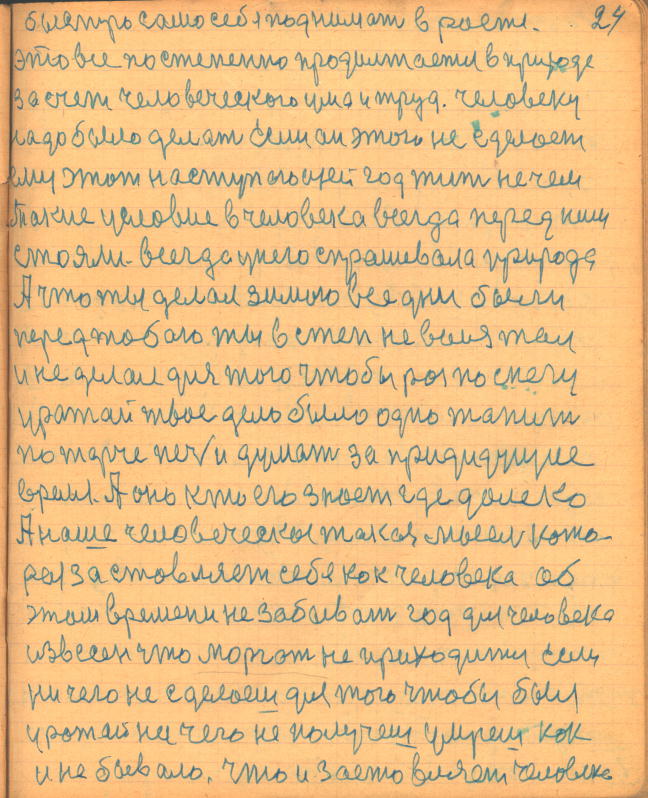 24
быстро само себя поднимат в росте.
это все постепенно продолтается в природе
за счет человеческого ума и труд. человеку
надо было делат если он этого не сделает
ему этот наступающей год тит нечем
такие условие в человека всегда перед ним
стояли. всегда унего спрашевала природа
А что ты делал зимою все дни были
перед тобою ты в степ не выятал
и не делал для того чтобы рос по снегу
уратай твое дело было одно тапит
по тарче печ и думат за придидущие
время. А оно кто его знает где далеко
А наше человеческая такая мысел кото
рая заставляет себя как человека об
этом времени не забыват год для человека
извесен что моргат не приходится если
ничего не сделаеш для того чтобы был
уротай не чего не получеш умреш как
и не бывало. что и заставляет человека